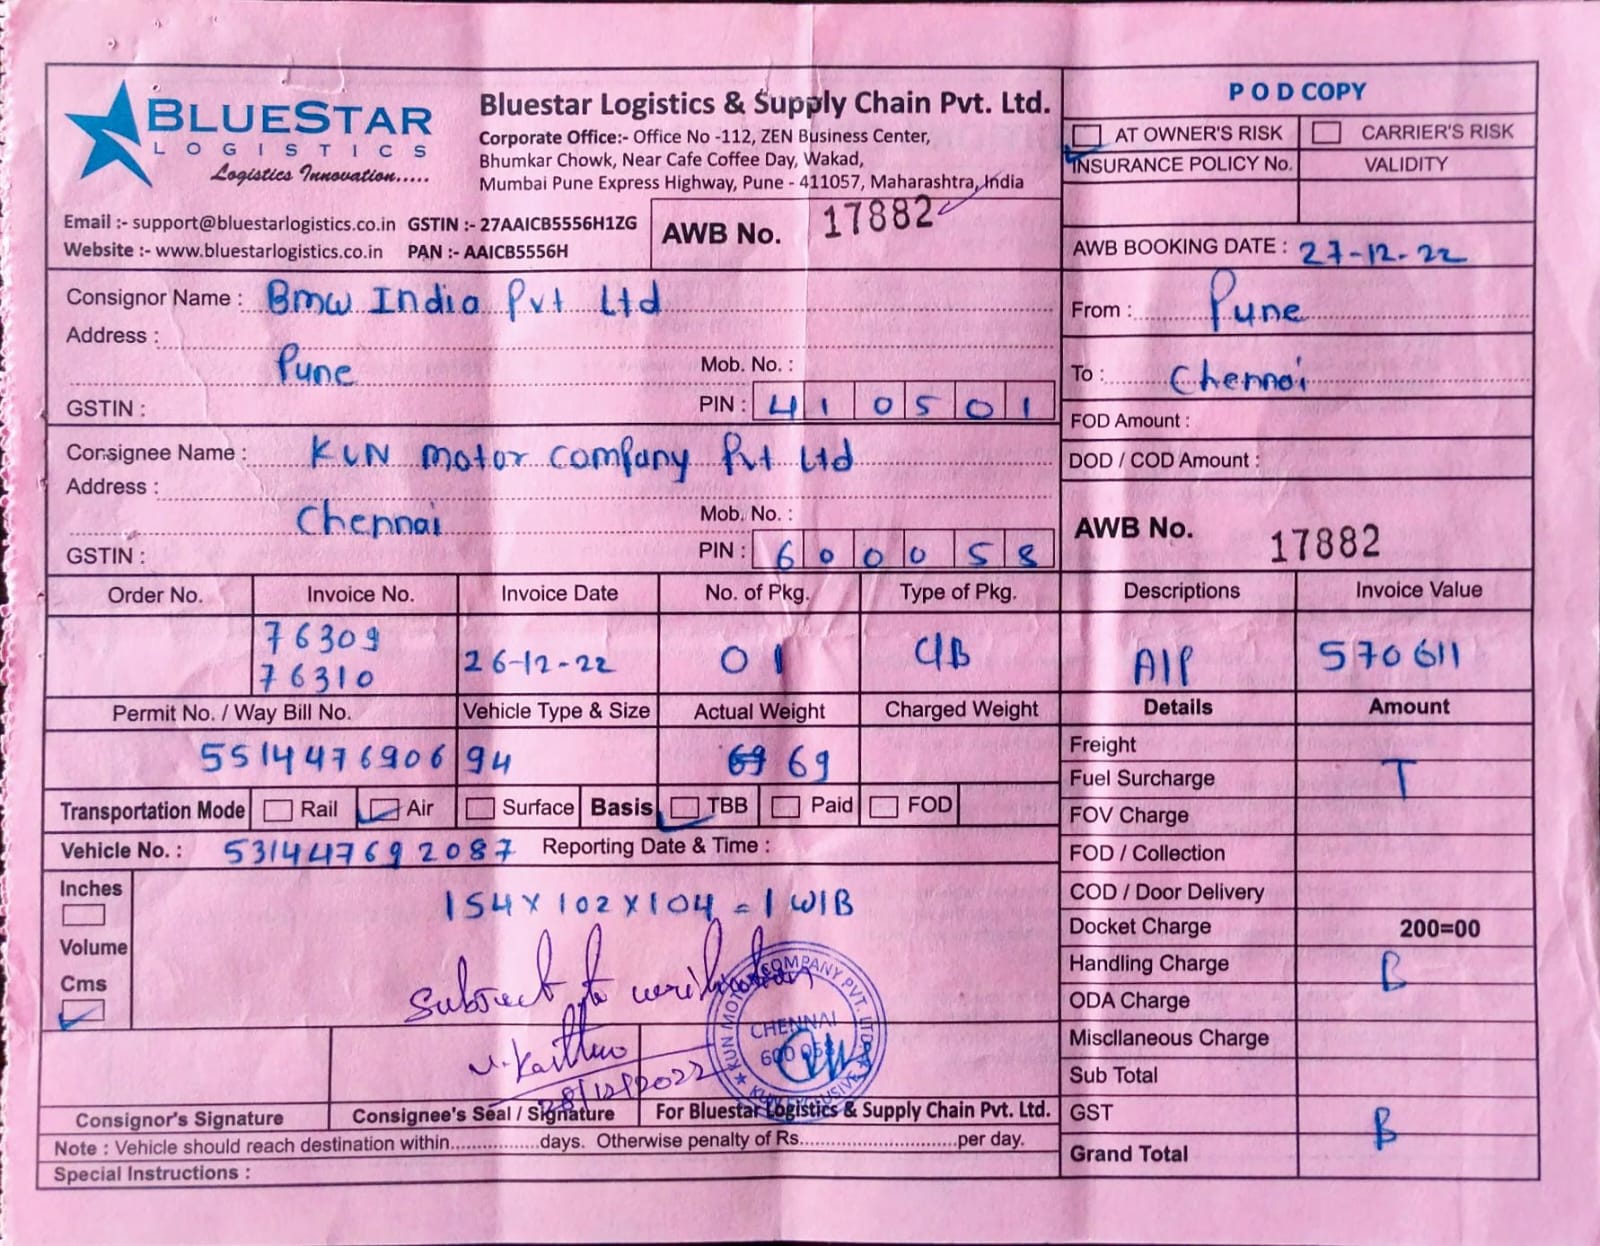 BLUESTAR
LOGISTICS
Logistics Innovation.....
Bluestar Logistics & Supply Chain Pvt. Ltd.
Corporate Office:- Office No -112, ZEN Business Center,
Bhumkar Chowk, Near Cafe Coffee Day, Wakad,
Mumbai Pune Express Highway, Pune - 411057, Maharashtra, India
Email :- support@bluestarlogistics.co.in GSTIN :- 27AAICB5556H1ZG
Website :- www.bluestarlogistics.co.in PAN :- AAICB5556H
AWB No. 17882
P O D COPY
AT OWNER'S RISK CARRIER'S RISK
INSURANCE POLICY No. VALIDITY
AWB BOOKING DATE : 27-12-22
Consignor Name : Bmw India Pvt Ltd
Address :
Pune Mob. No. :
GSTIN : PIN : 410501
From : Pune
To : Chennai
FOD Amount :
DOD / COD Amount :
Consignee Name : KUN motor company Pvt Ltd
Address :
Chennai Mob. No. :
GSTIN : PIN : 600058
AWB No. 17882
Order No. Invoice No. Invoice Date No. of Pkg. Type of Pkg. Descriptions Invoice Value
76309
76310 26-12-22 01 C/B A/P 570611
Permit No. / Way Bill No. Vehicle Type & Size Actual Weight Charged Weight Details Amount
551447690694 69 69
Transportation Mode Rail Air Surface Basis TBB Paid FOD
Vehicle No. : 531447692087 Reporting Date & Time :
Freight
Fuel Surcharge T
FOV Charge
FOD / Collection
COD / Door Delivery
Docket Charge 200=00
Handling Charge B
ODA Charge
Miscllaneous Charge
Sub Total
GST B
Grand Total
Inches
Volume
Cms
154 x 102 x 104 = 1 W/B
Subject to verification
28/12/2022
KUN MOTOR COMPANY PVT. LTD.
CHENNAI
600 058
KUN EXCLUSIVE
Consignor's Signature Consignee's Seal / Signature For Bluestar Logistics & Supply Chain Pvt. Ltd.
Note : Vehicle should reach destination within................days. Otherwise penalty of Rs............................per day.
Special Instructions :